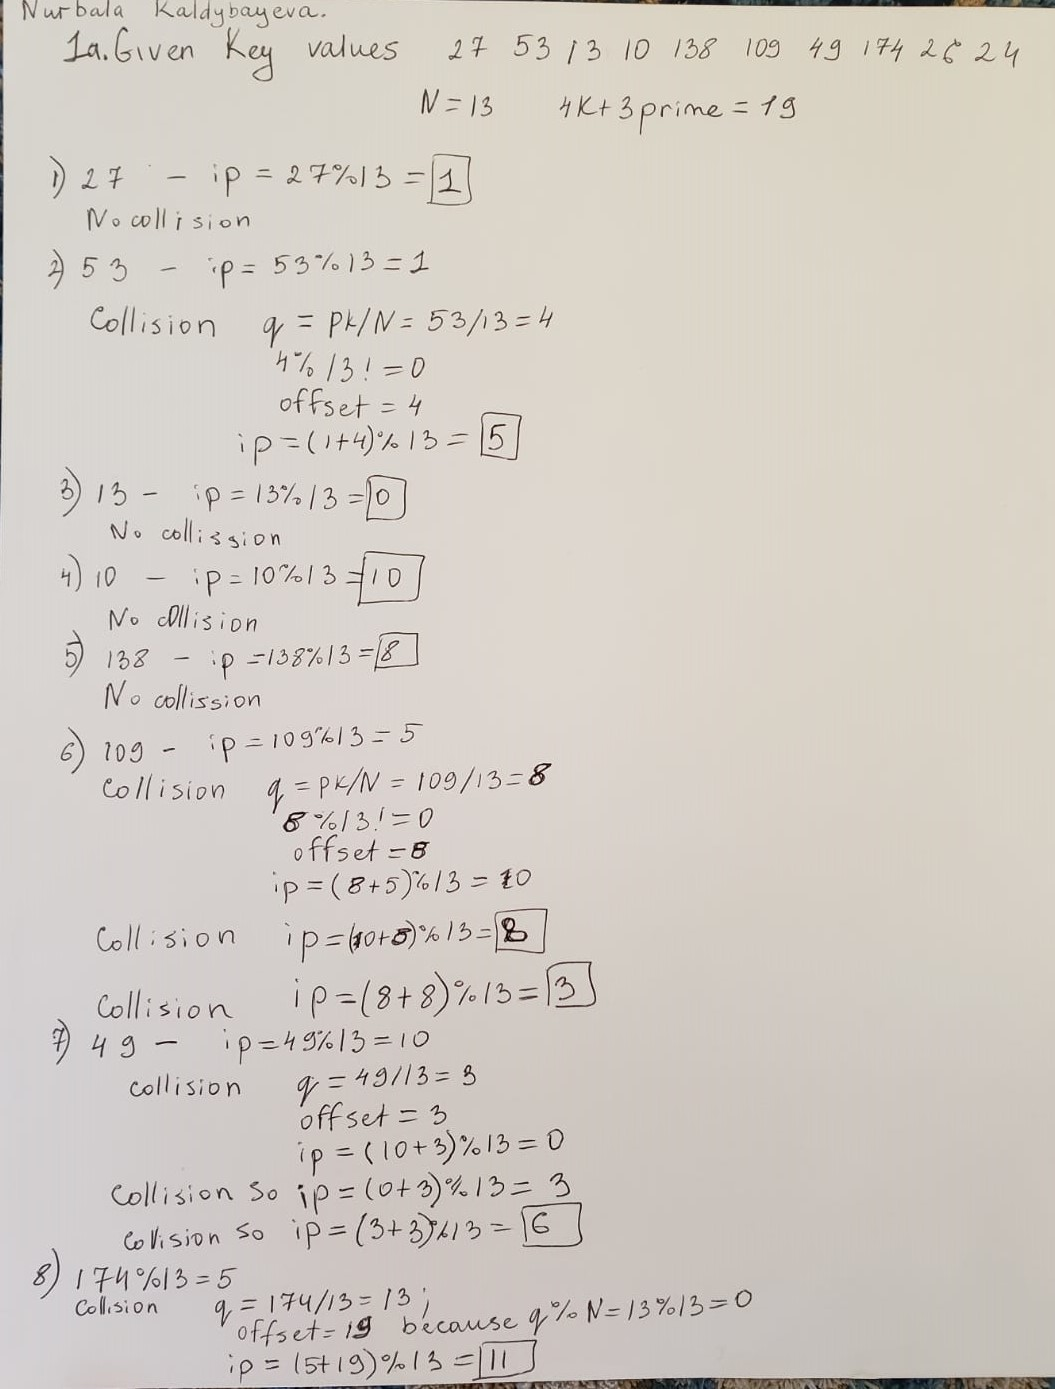 Nurbala Kaldybayeva.
1a. Given Key values 27 53 13 10 138 109 49 174 26 24
N = 13 4K+3 prime = 19
1) 27 - ip = 27%13 = 1
No collision
2) 53 - ip = 53%13 = 1
Collision q = pk/N = 53/13 = 4
4%13! = 0
offset = 4
ip = (1+4)%13 = 5
3) 13 - ip = 13%13 = 0
No collission
4) 10 - ip = 10%13 = 10
No collision
5) 138 - ip = 138%13 = 8
No collission
6) 109 - ip = 109%13 = 5
Collision q = pk/N = 109/13 = 8
8%13! = 0
offset = 8
ip = (8+5)%13 = 10
Collision ip = (10+8)%13 = 8
Collision ip = (8+8)%13 = 3
7) 49 - ip = 49%13 = 10
collision q = 49/13 = 3
offset = 3
ip = (10+3)%13 = 0
Collision so ip = (0+3)%13 = 3
Collision so ip = (3+3)%13 = 6
8) 174%13 = 5
Collision q = 174/13 = 13;
offset = 19 because q%N = 13%13 = 0
ip = (5+19)%13 = 11